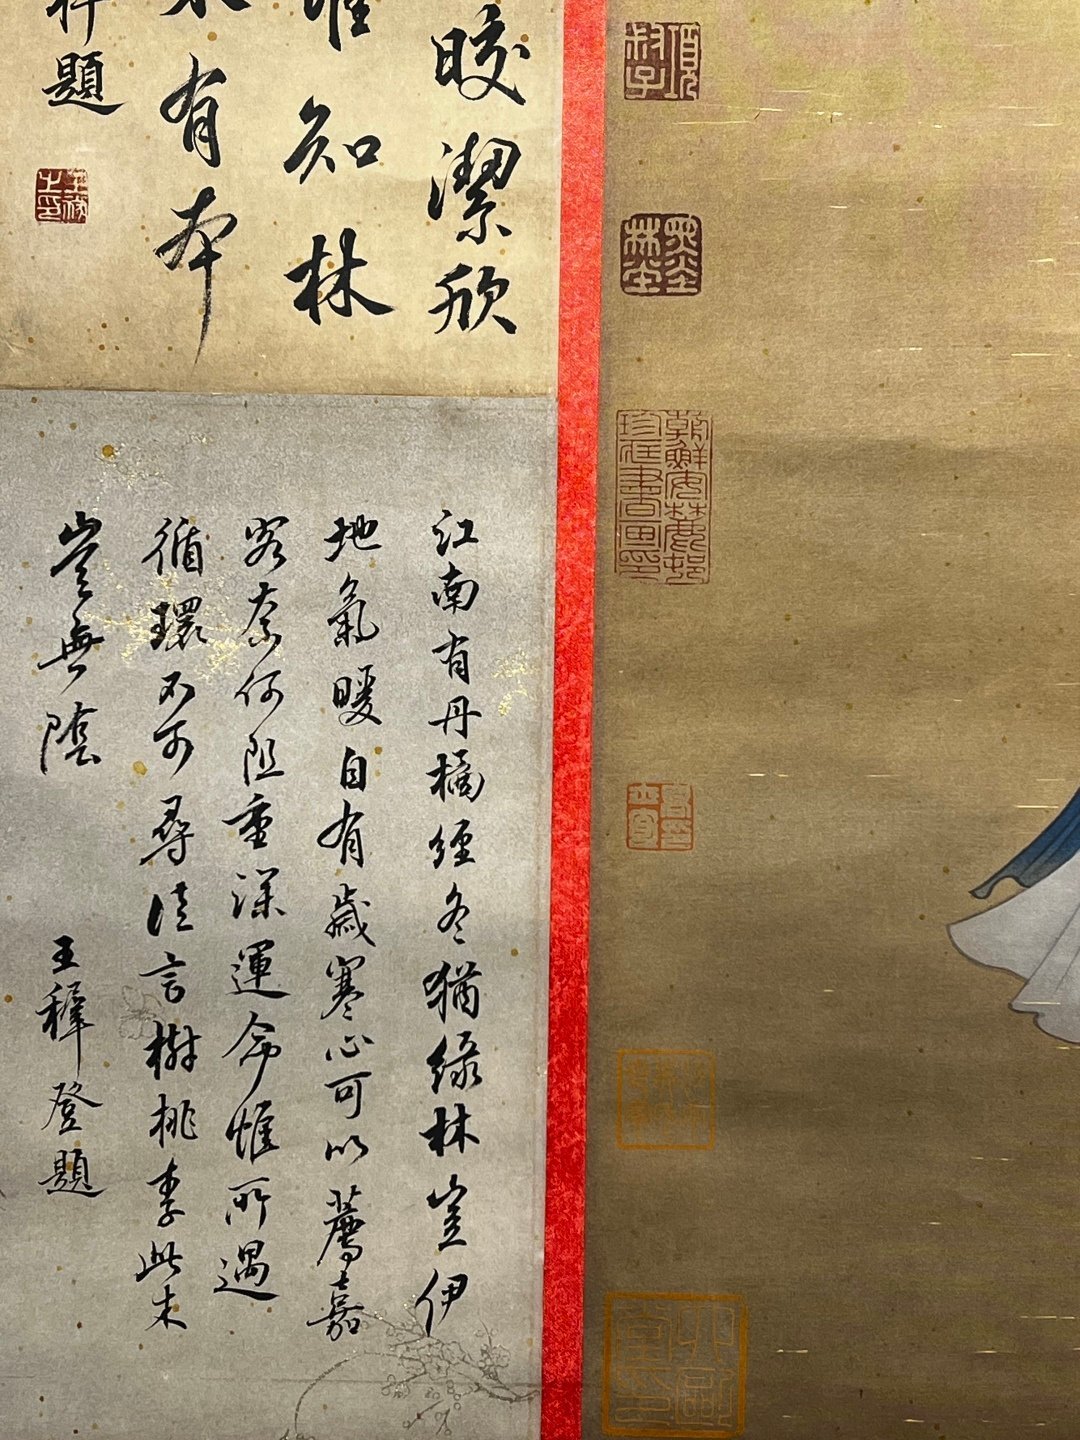 皎潔欣
知林
有本
題
江南有丹橘經冬猶綠林豈伊
地氣暖自有歲寒心可以薦嘉
客奈何阻重深運命惟所遇
循環不可尋徒言樹桃李此木
豈無陰
王穉登題
項叔子
墨林
朝鮮安麓邨
珍藏書畫印